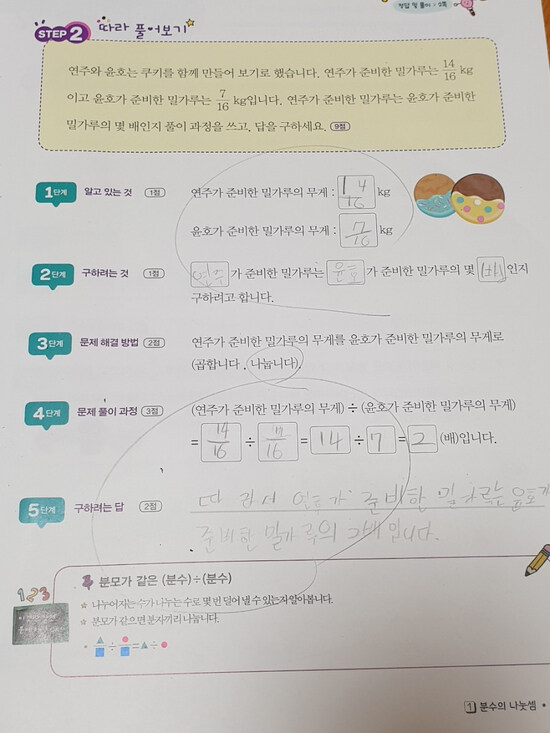 정답 및 풀이 • 3쪽
STEP 2 따라 풀어보기
연주와 윤호는 쿠키를 함께 만들어 보기로 했습니다. 연주가 준비한 밀가루는 14/16 kg
이고 윤호가 준비한 밀가루는 7/16 kg입니다. 연주가 준비한 밀가루는 윤호가 준비한
밀가루의 몇 배인지 풀이 과정을 쓰고, 답을 구하세요. 9점
1단계 알고 있는 것 1점 연주가 준비한 밀가루의 무게 : 14/16 kg
윤호가 준비한 밀가루의 무게 : 7/16 kg
2단계 구하려는 것 1점 연주가 준비한 밀가루는 윤호가 준비한 밀가루의 몇 배인지
구하려고 합니다.
3단계 문제 해결 방법 2점 연주가 준비한 밀가루의 무게를 윤호가 준비한 밀가루의 무게로
(곱합니다 , 나눕니다).
4단계 문제 풀이 과정 3점 (연주가 준비한 밀가루의 무게) ÷ (윤호가 준비한 밀가루의 무게)
= 14/16 ÷ 7/16 = 14 ÷ 7 = 2 (배)입니다.
5단계 구하려는 답 2점 따라서 연주가 준비한 밀가루는 윤호가
준비한 밀가루의 2배입니다.
123
분모가 같은 (분수)÷(분수)
☆ 나누어지는 수가 나누는 수로 몇 번 덜어 낼 수 있는지 알아봅니다.
☆ 분모가 같으면 분자끼리 나눕니다.
• ▲/■ ÷ ●/■ = ▲ ÷ ●
1 분수의 나눗셈 •